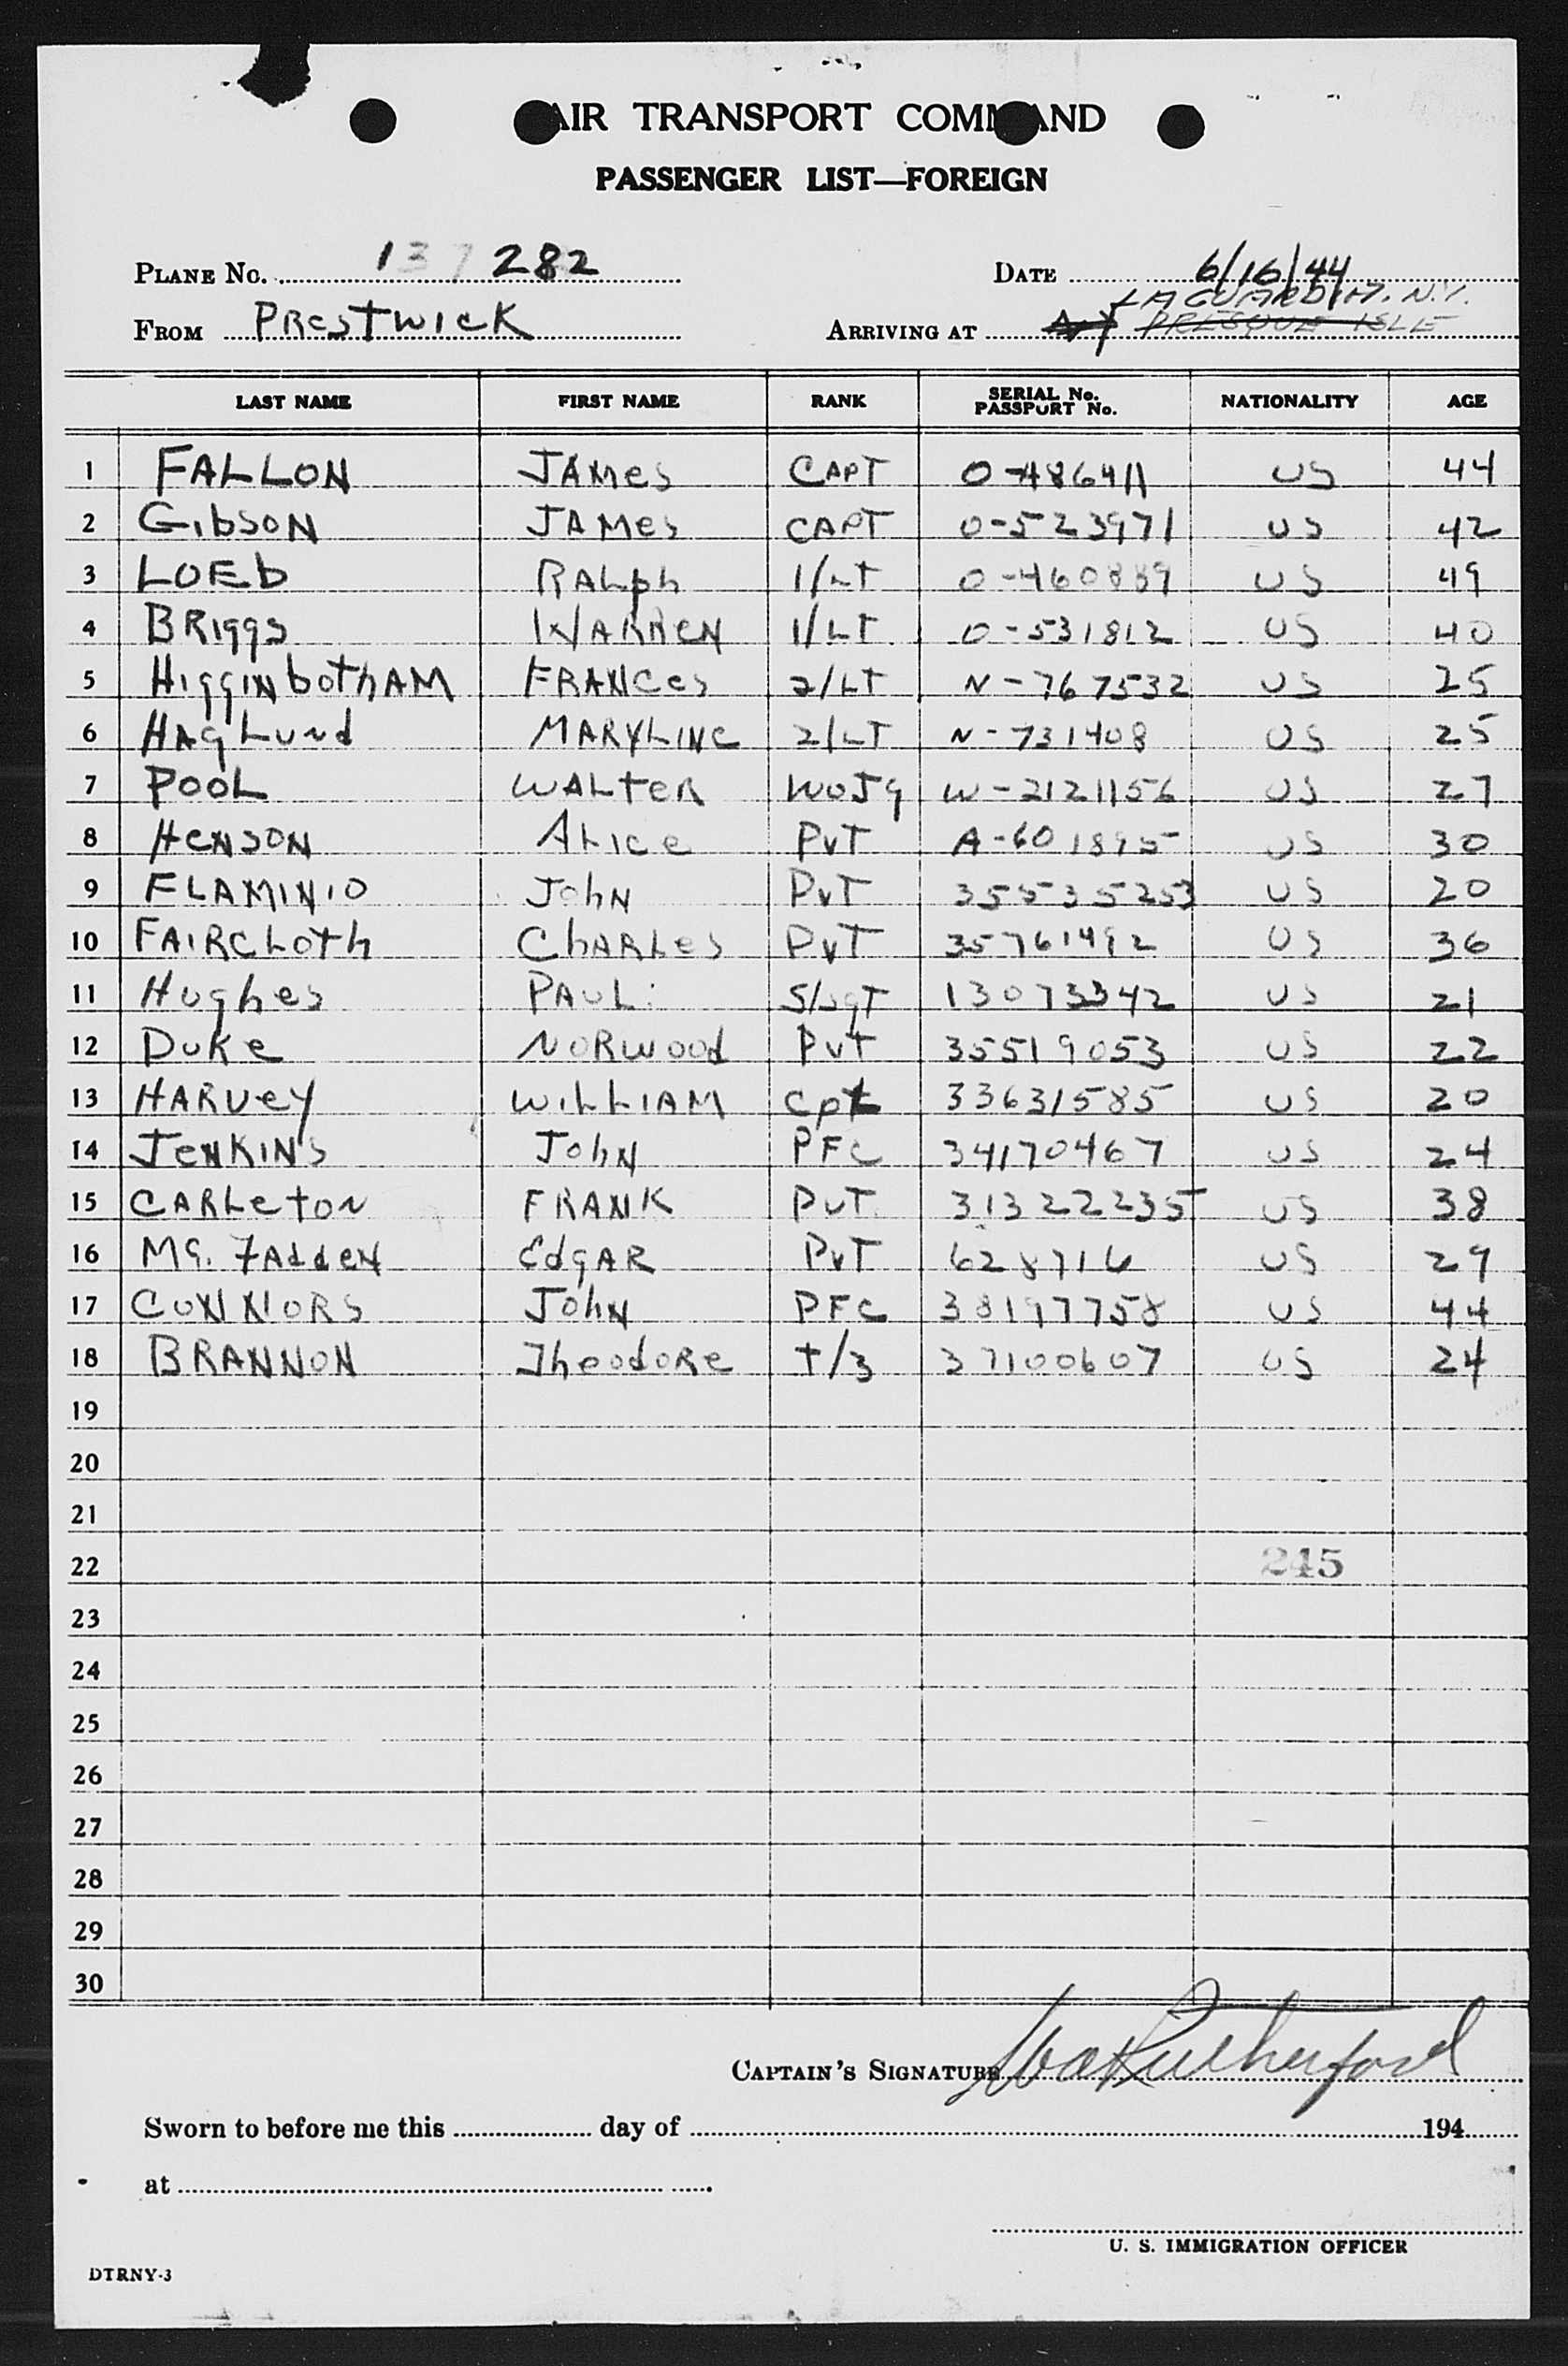 AIR TRANSPORT COMMAND
PASSENGER LIST—FOREIGN
PLANE No. 137 282 DATE 6/16/44
LAGUARDIA. N.Y.
FROM PRESTWICK ARRIVING AT NY PRESQUE ISLE
LAST NAME FIRST NAME RANK SERIAL No. PASSPORT No. NATIONALITY AGE
1 FALLON JAMes CAPT O-486411 US 44
2 GibsoN JAMes CAPT O-523971 US 42
3 LOEb RALph 1/LT O-460889 US 49
4 BRIggs WARREN 1/LT O-531812 US 40
5 HIggINbothAM FRANCes 2/LT N-767532 US 25
6 HAgLund MARYLINE 2/LT N-731408 US 25
7 POOL WALTER WOJg W-2121156 US 27
8 HENSON ALICE PVT A-601895 US 30
9 FLAMINIO JOhN PVT 35535253 US 20
10 FAIRCLOTh ChARLes PVT 35761492 US 36
11 Hughes PAUL S/SgT 13073342 US 21
12 DUKe NORWOOd PVT 35519053 US 22
13 HARVey WILLIAM Cpt 33631585 US 20
14 JeNKINS JOhN PFC 34170467 US 24
15 CARLeTON FRANK PVT 31322235 US 38
16 Mc. FAddeN EdgAR PVT 628716 US 29
17 CONNORS JOhN PFC 38197758 US 44
18 BRANNON TheodoRe T/3 37100607 US 24
19
20
21
22 245
23
24
25
26
27
28
29
30
CAPTAIN'S SIGNATURE Rutherford
Sworn to before me this day of 194
at
U. S. IMMIGRATION OFFICER
DTRNY-3